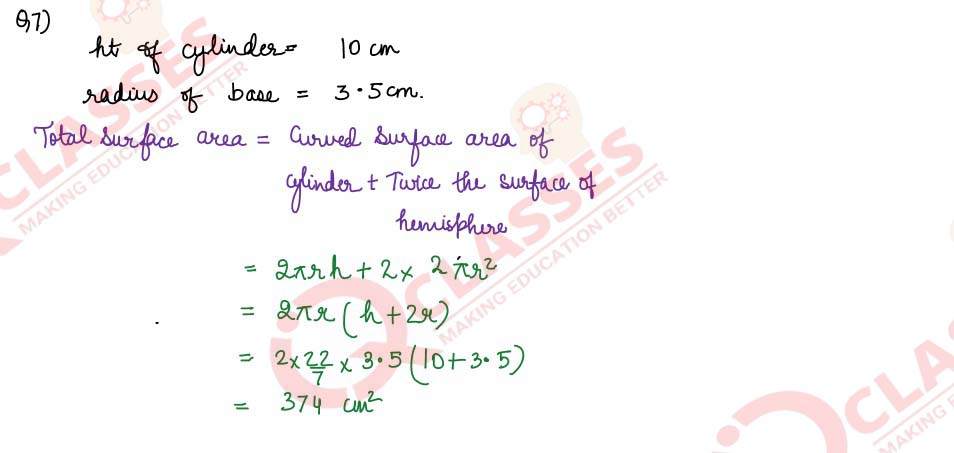 Q7)
ht of cylinder = 10 cm
radius of base = 3.5cm.
Total surface area = Curved surface area of
cylinder + Twice the surface of
hemisphere
= 2πrh + 2 × 2πr²
= 2πr (h + 2r)
= 2 × 22/7 × 3.5 (10 + 3.5)
= 374 cm²
CLASSES
MAKING EDUCATION BETTER
CLASSES
MAKING EDUCATION BETTER
CLA
MAKING E